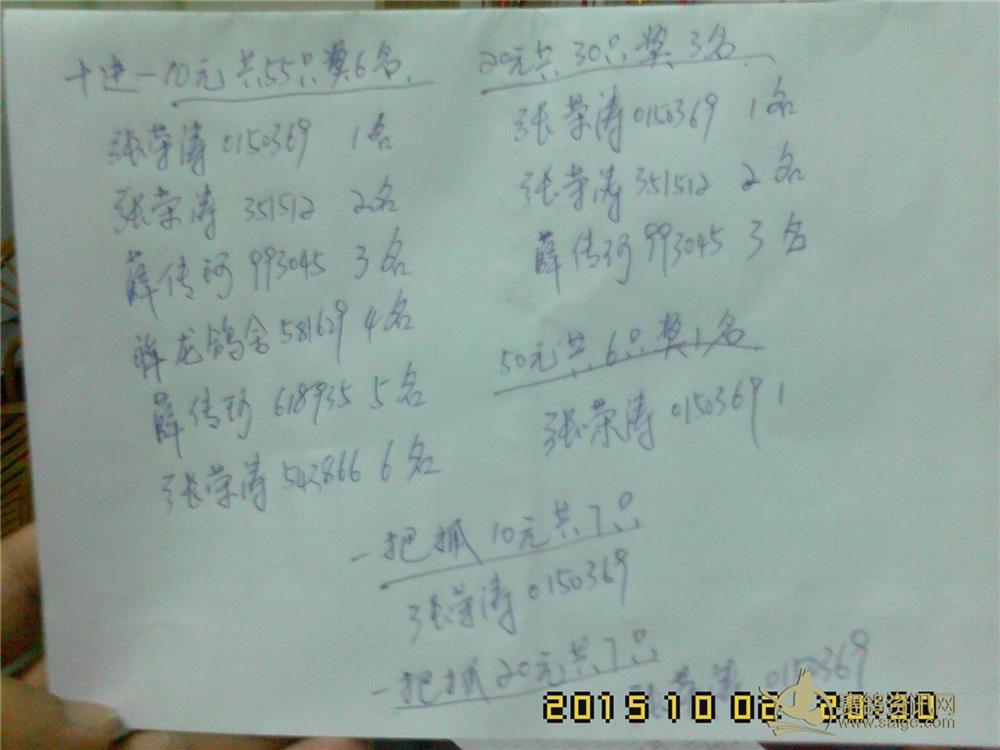 十进一10元共55只奖6名
张荣涛 0150369 1名
张荣涛 351512 2名
薛传珂 993045 3名
龙鸽舍 581629 4名
薛传珂 618935 5名
张荣涛 543866 6名
20元共30只奖3名
张荣涛 0150369 1名
张荣涛 351512 2名
薛传珂 993045 3名
50元共6只奖1名
张荣涛 0150369 1
一把抓10元共7只
张荣涛 0150369
一把抓20元共7只
张荣涛 0150369
2015 10 02
赛鸽资讯网
www.saige.com